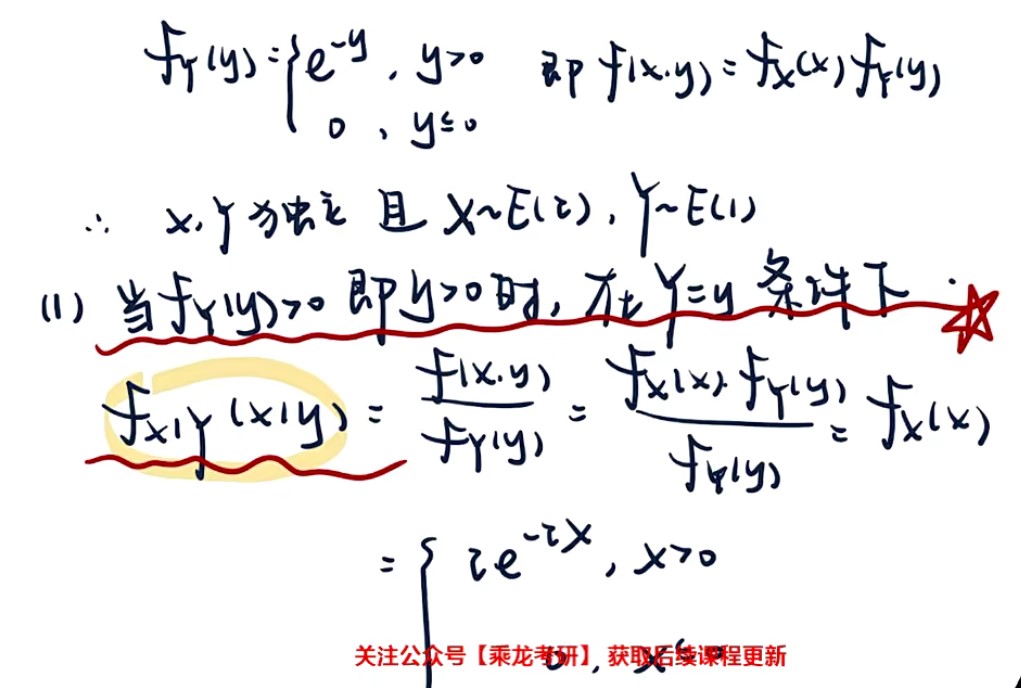 f_Y(y)={e^{-y}, y>0 即 f(x,y)=f_X(x)f_Y(y)
0, y≤0
∴ X,Y为独立 且 X~E(2), Y~E(1)
(1) 当f_Y(y)>0 即y>0时, 在Y=y 条件下
f_{X|Y}(x|y) = f(x,y)/f_Y(y) = f_X(x)·f_Y(y)/f_Y(y) = f_X(x)
= { 2e^{-2x}, x>0
0, x≤0
关注公众号【乘龙考研】获取后续课程更新